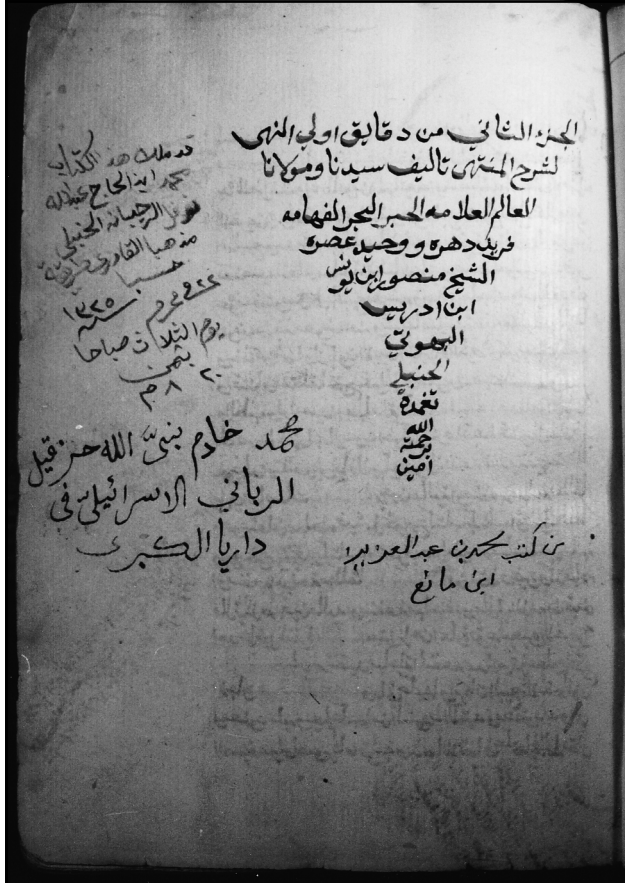 الجزء الثاني من دقايق اولي النهى
لشرح المنتهى تاليف سيدنا ومولانا
العالم العلامه الحبر البحر الفهامه
فريد دهره ووحيد عصره
الشيخ منصور ابن يونس
ابن ادريس
البهوتي
الحنبلي
تغمده
الله
برحمته
امين
قد ملك هذ الكتاب
محمد ابن الحاج عبدالله
الرحيبانه الحنبلي
مذهبا القادري
حسبا
٢٢ محرم
سنة ١٣٢٥
يوم الثلاث صباحا
بثمن
٢٠ ٨ م
محمد خادم نبيّ الله حزقيل
الرباني الاسرائيليّ في
داريا الكبرى
من كتب محمد بن عبد العزيز
ابن مانع